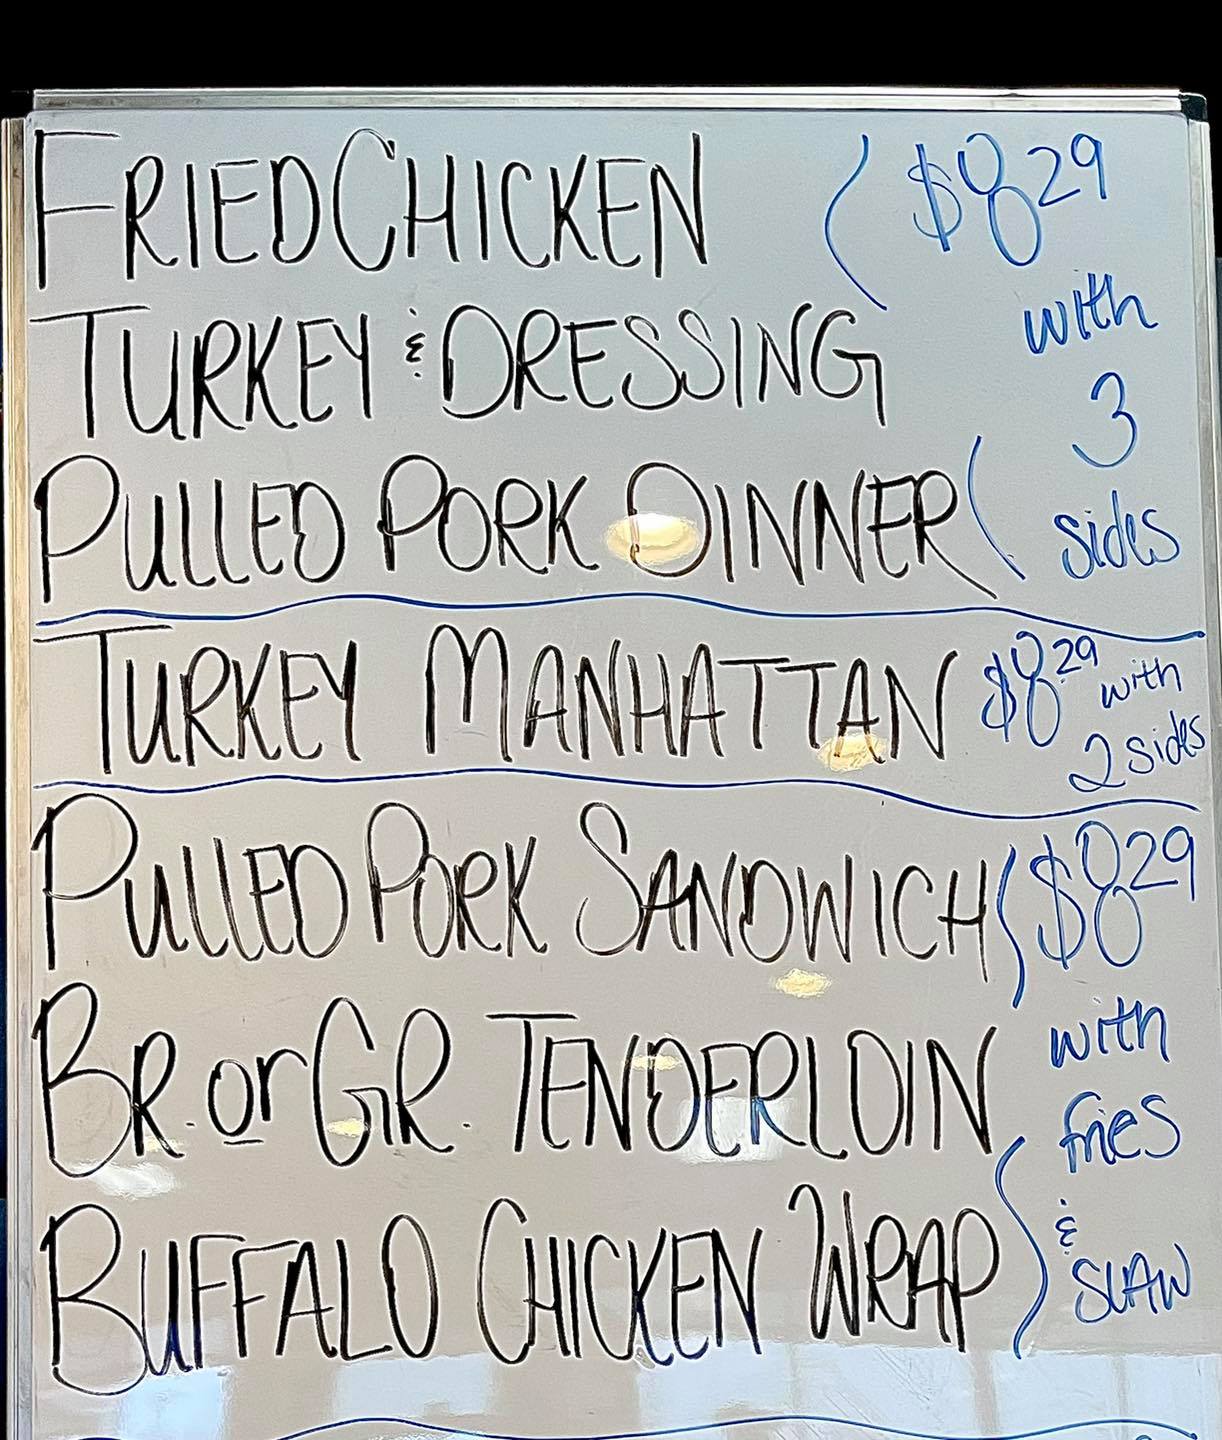 FRIED CHICKEN
TURKEY & DRESSING
PULLED PORK DINNER
$8.29
with
3
sides
TURKEY MANHATTAN
$8.29 with
2 sides
PULLED PORK SANDWICH
BR. or GR. TENDERLOIN
BUFFALO CHICKEN WRAP
$8.29
with
fries
&
SLAW